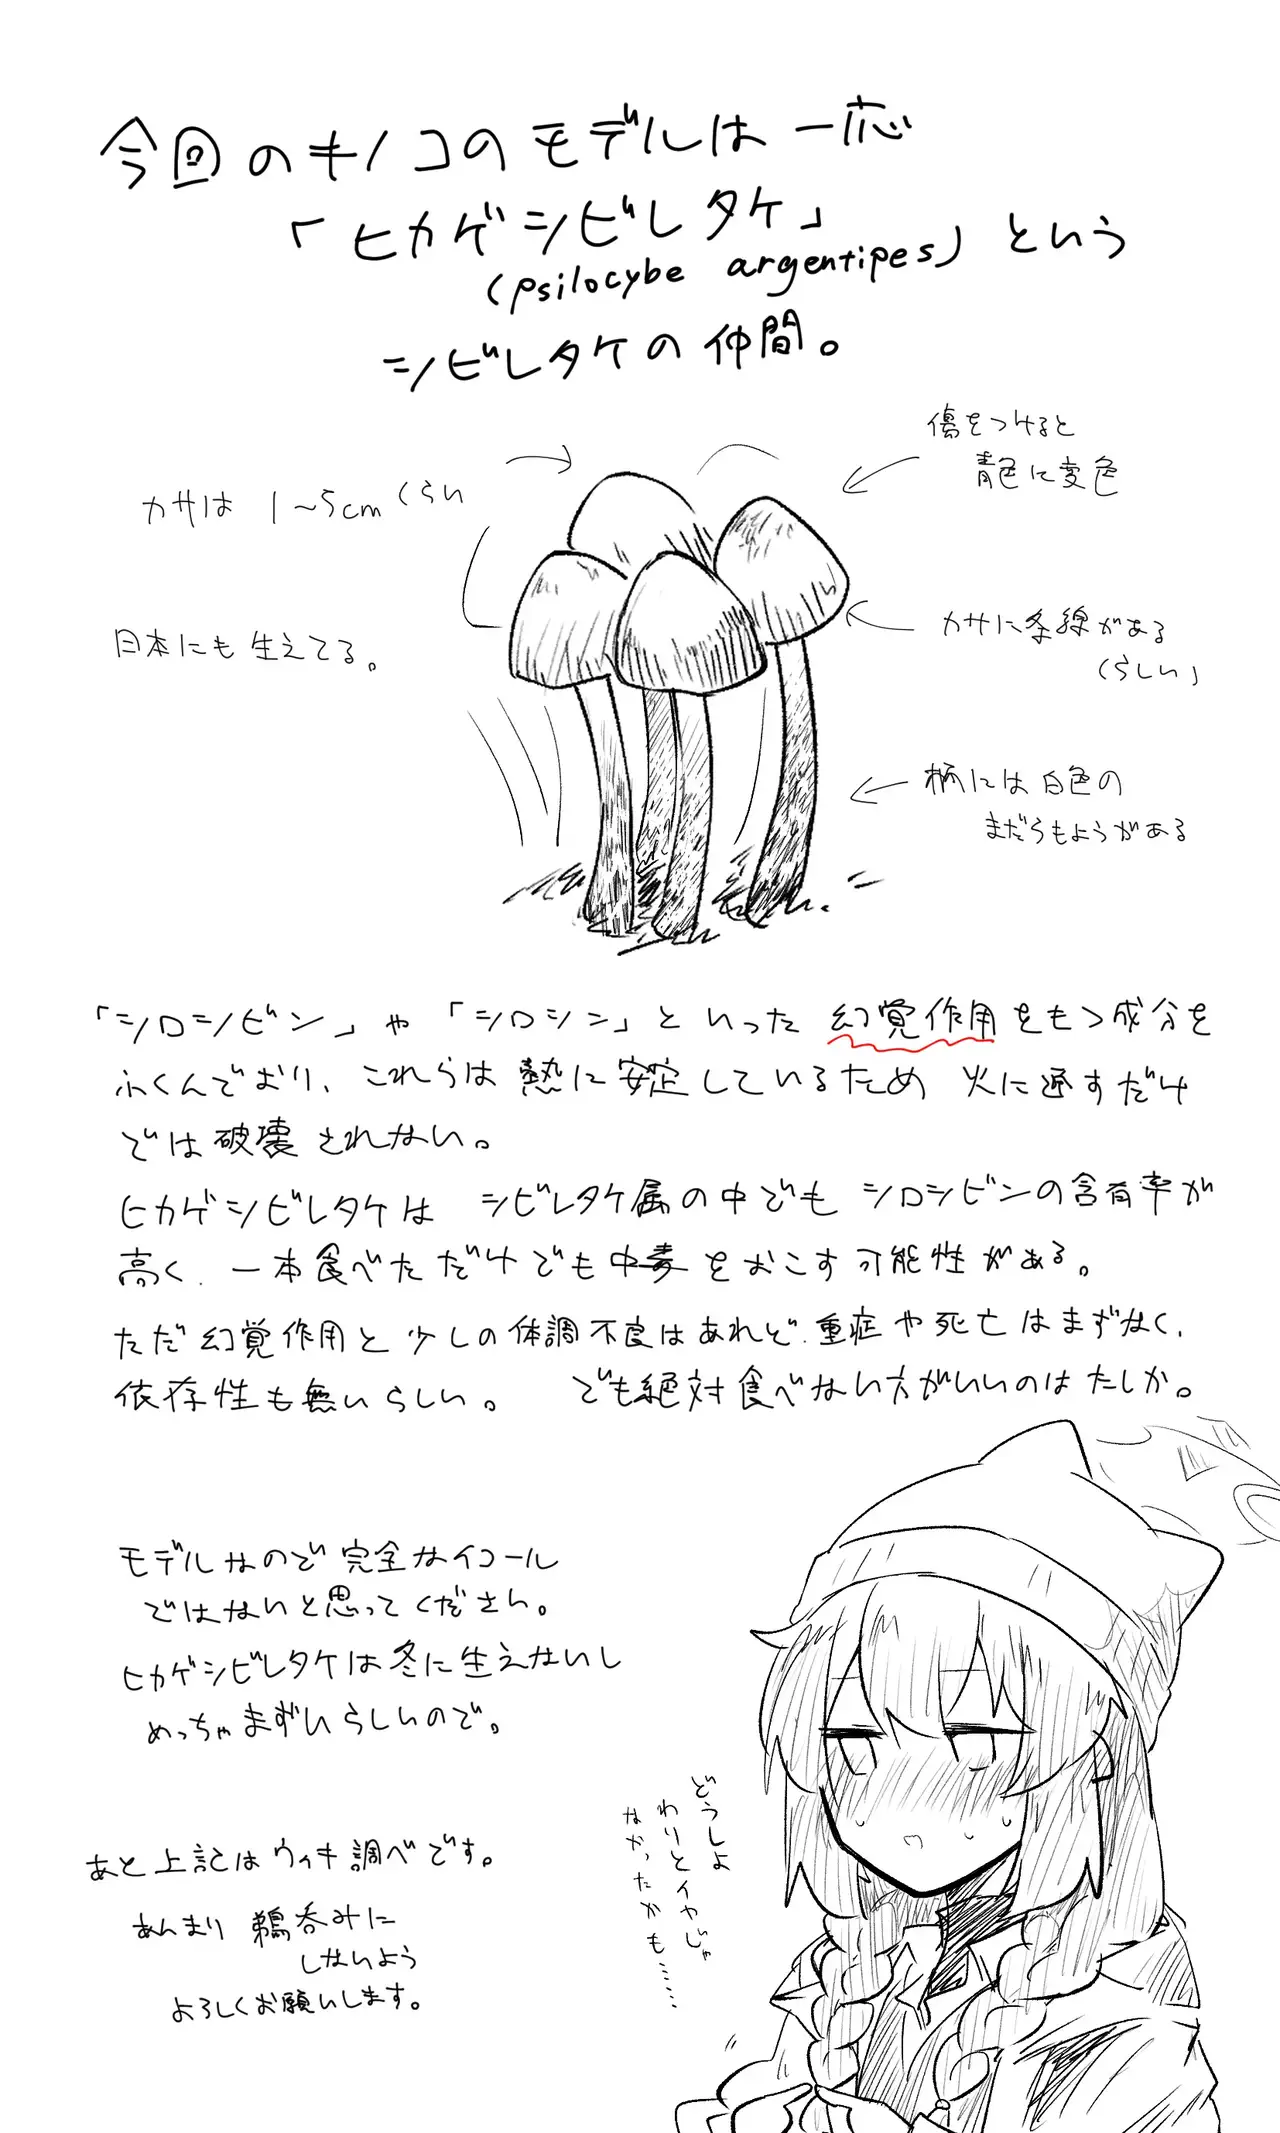 今回のキノコのモデルは一応
「ヒカゲシビレタケ」
(psilocybe argentipes) という
シビレタケの仲間。
傷をつけると
青色に変色
カサは 1～5cmくらい
カサに条線がある
(らしい)
日本にも生えてる。
柄には白色の
まだらもようがある
「シロシビン」や「シロシン」といった幻覚作用をもつ成分を
ふくんでおり、これらは熱に安定しているため 火に通すだけ
では破壊されない。
ヒカゲシビレタケは シビレタケ属の中でも シロシビンの含有率が
高く、一本食べただけでも中毒をおこす可能性がある。
ただ幻覚作用と少しの体調不良はあれど、重症や死亡はまずなく、
依存性も無いらしい。 でも絶対食べない方がいいのはたしか。
モデルなので完全なイコール
ではないと思ってください。
ヒカゲシビレタケは冬に生えないし
めっちゃまずいらしいので。
どうしよ
わりとイヤじゃ
なかったかも……
あと上記はウィキ調べです。
あんまり鵜呑みに
しないよう
よろしくお願いします。